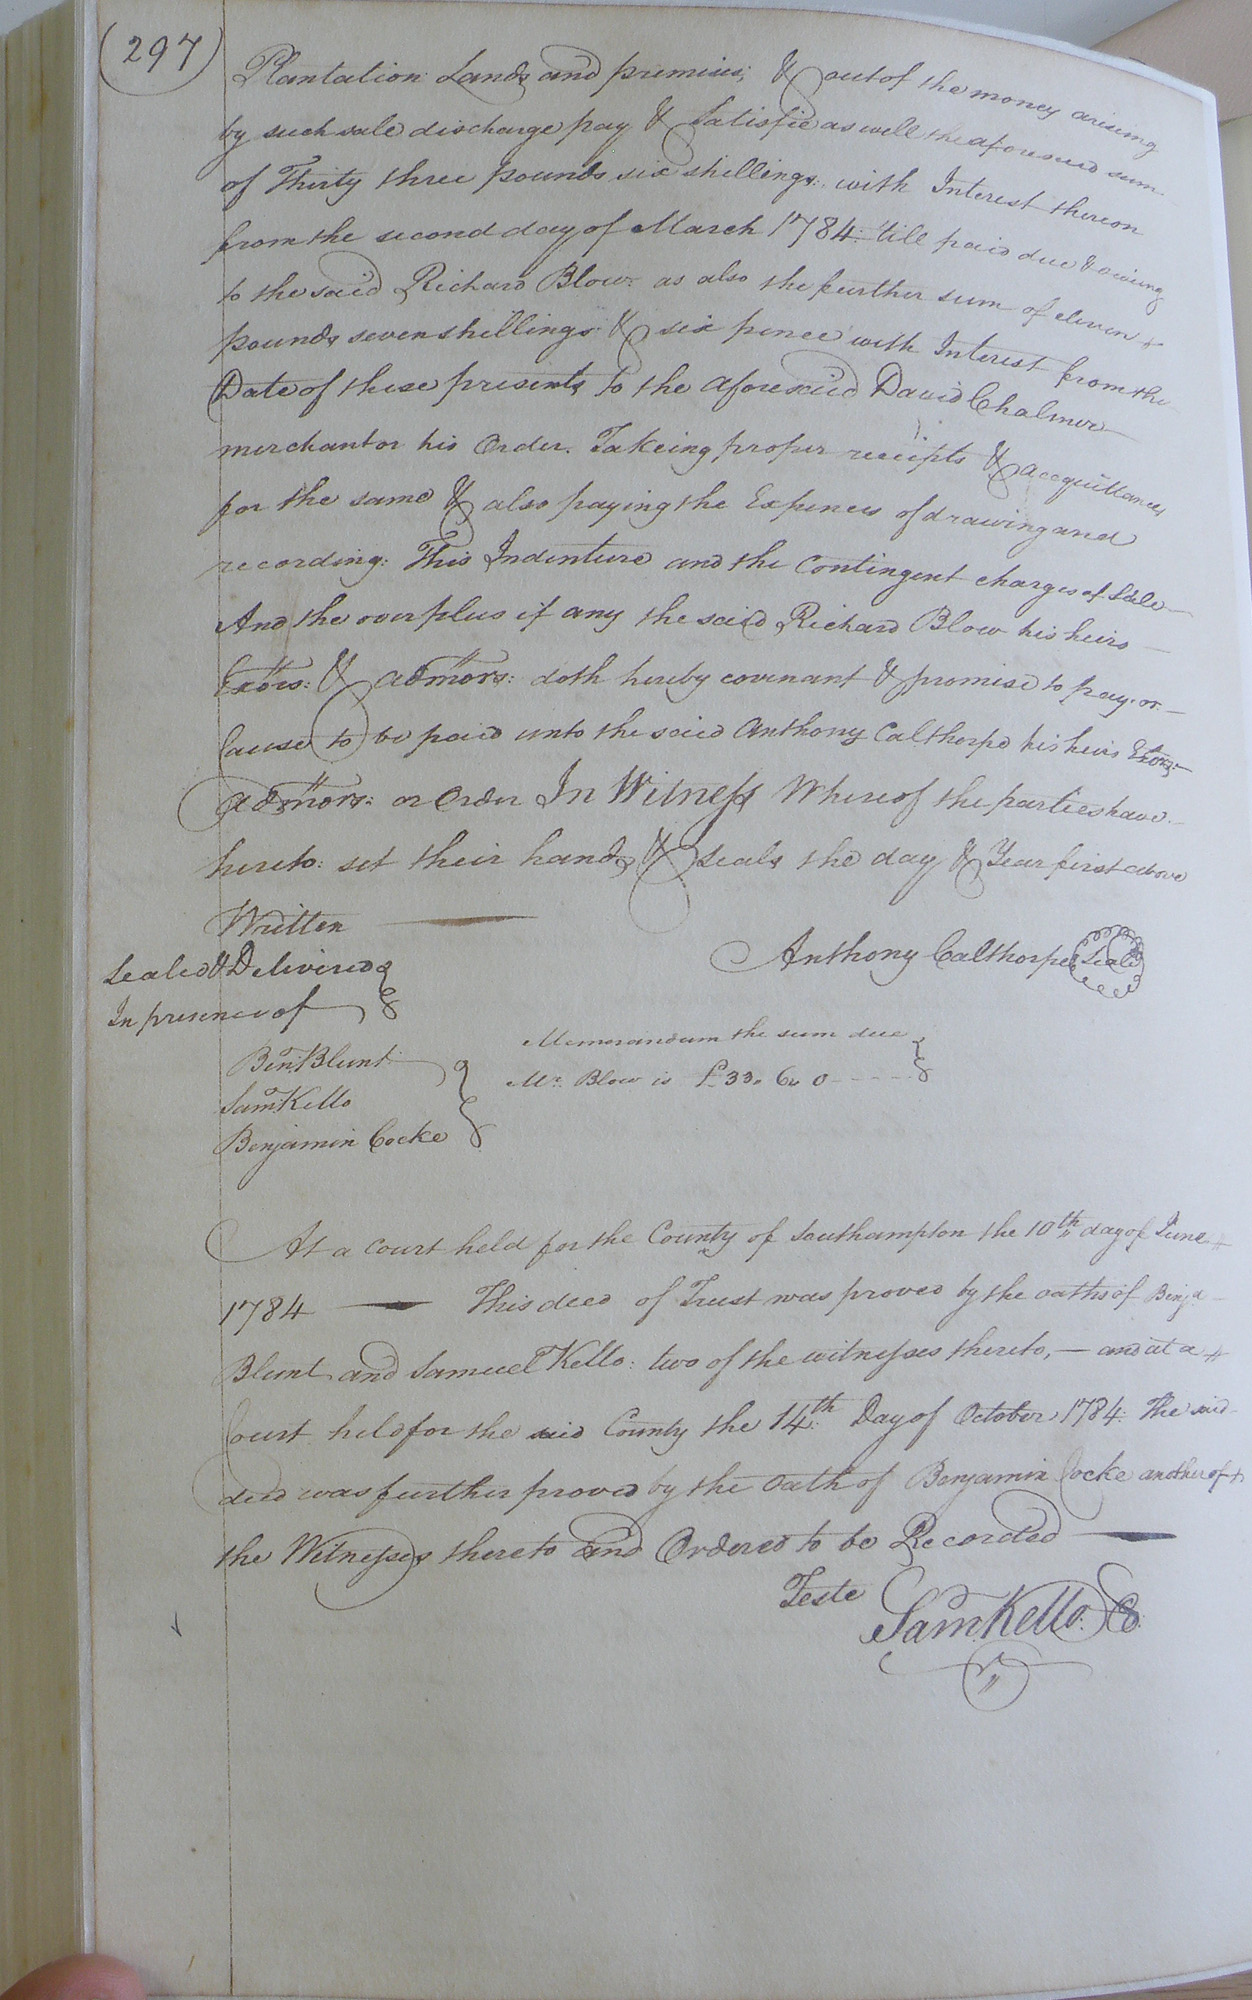 (297)
Plantation Lands and premises; & out of the money arising
by such sale discharge pay & Satisfie as well the aforesaid sum
of Thirty three pounds six shillings: with Interest thereon
from the second day of March 1784: till paid due & owing
to the said Richard Blow: as also the further sum of eleven
pounds seven shillings & six pence with Interest from the
Date of these presents to the aforesaid David Chalmer
merchant or his Order. Takeing proper receipts & acquittances
for the same & also paying the Expences of drawing and
recording: This Indenture and the contingent charges of Sale
And the overplus if any the said Richard Blow his heirs
Exors: & admors: doth hereby covenant & promise to pay or
Cause to be paid unto the said Anthony Calthorpe his heirs Exors:
admors: or Order In Witness Whereof the parties have
hereto: set their hands & Seals the day & Year first above
Written
Sealed & Delivered
In presence of
Anthony Calthorpe Seal
Ben: Blunt
Sam: Kello
Benjamin Cocke
Memorandum the sum due
Mr. Blow is £33. 6. 0
At a court held for the County of Southampton the 10th day of June
1784 — This deed of Trust was proved by the oaths of Benja
Blunt and Samuel Kello: two of the witnesses thereto, — and at a
Court held for the said County the 14th: Day of October 1784: The said
deed was further proved by the oath of Benjamin Cocke another of
the Witnesses thereto and Ordered to be Recorded —
Teste
Sam. Kello. C